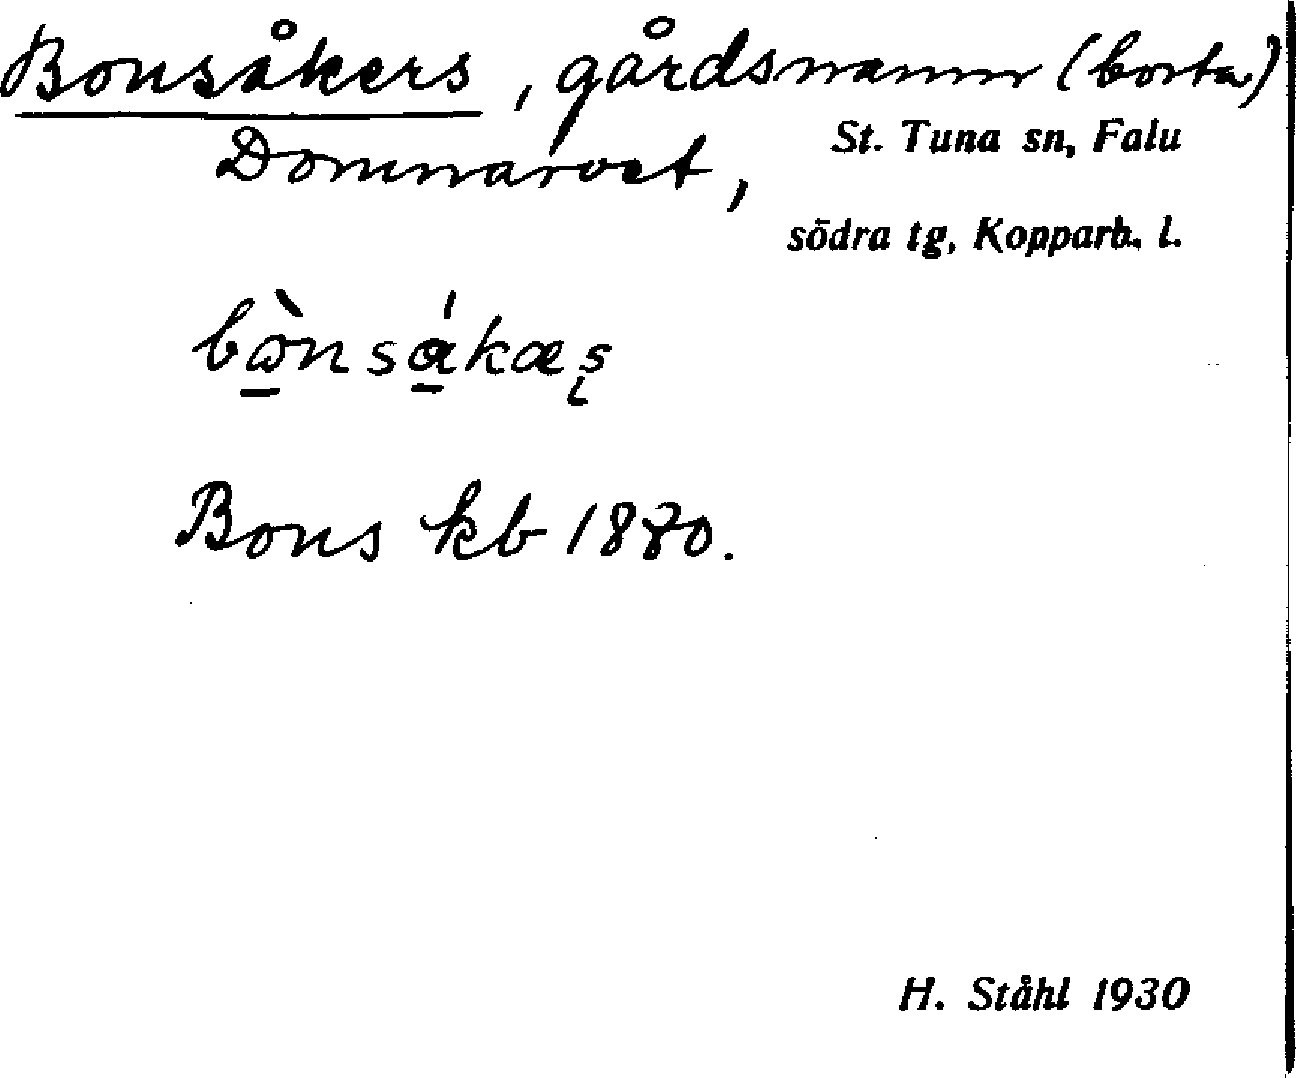 Bonsåkers, gårdsnamn (borta)
Domnarvet,
St. Tuna sn, Falu
södra tg, Kopparb. l.
Bons kb 1880.
H. Ståhl 1930